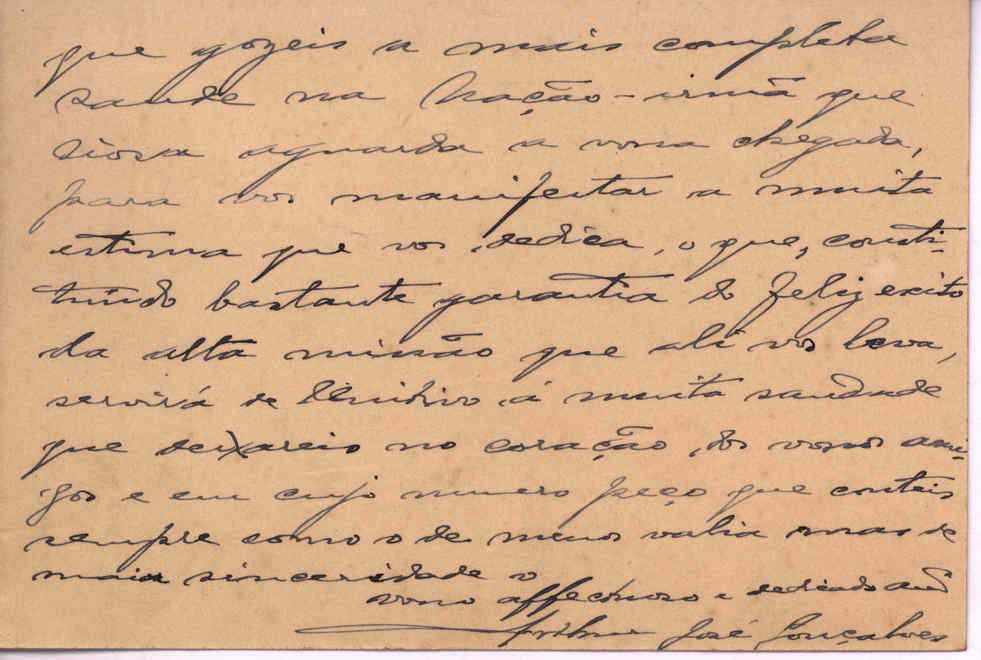 que gozeis a mais completa
saude na Nação-irmã que
aguarda a vossa chegada,
para vos manifestar a muita
estima que vos dedica, o que, consti-
tuindo bastante garantia do feliz exito
da alta missão que ali vos leva,
servirá de á muita saudade
que deixareis no coração dos vossos ami-
gos e em cujo numero peço que conteis
sempre como o de menos valia mas de
maior sinceridade o
vosso affectuoso e dedicado amº
José Gonçalves